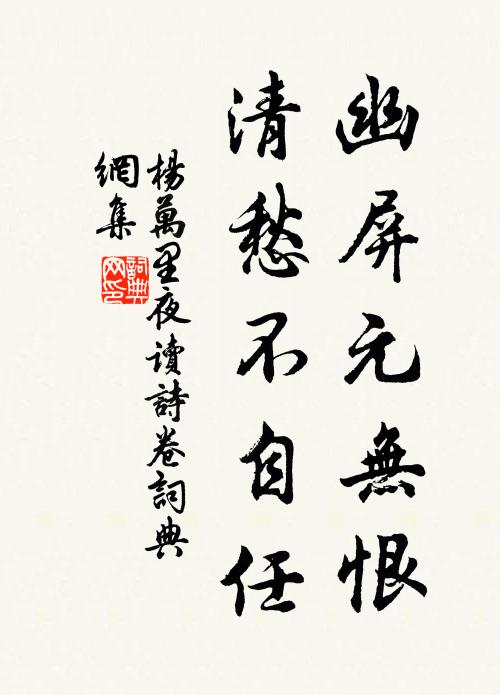 幽屏元無恨
清愁不自任
楊萬里夜讀詩卷詞典
網集
詞典網印